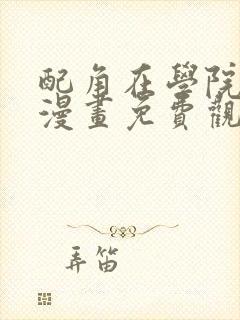 配角在學院
漫畫免費觀
弄笛